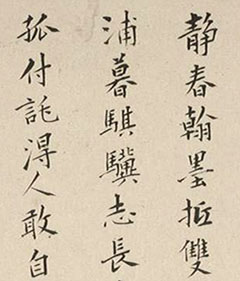 静春翰墨抵雙
浦暮騏驥志長
孤付託得人敢自